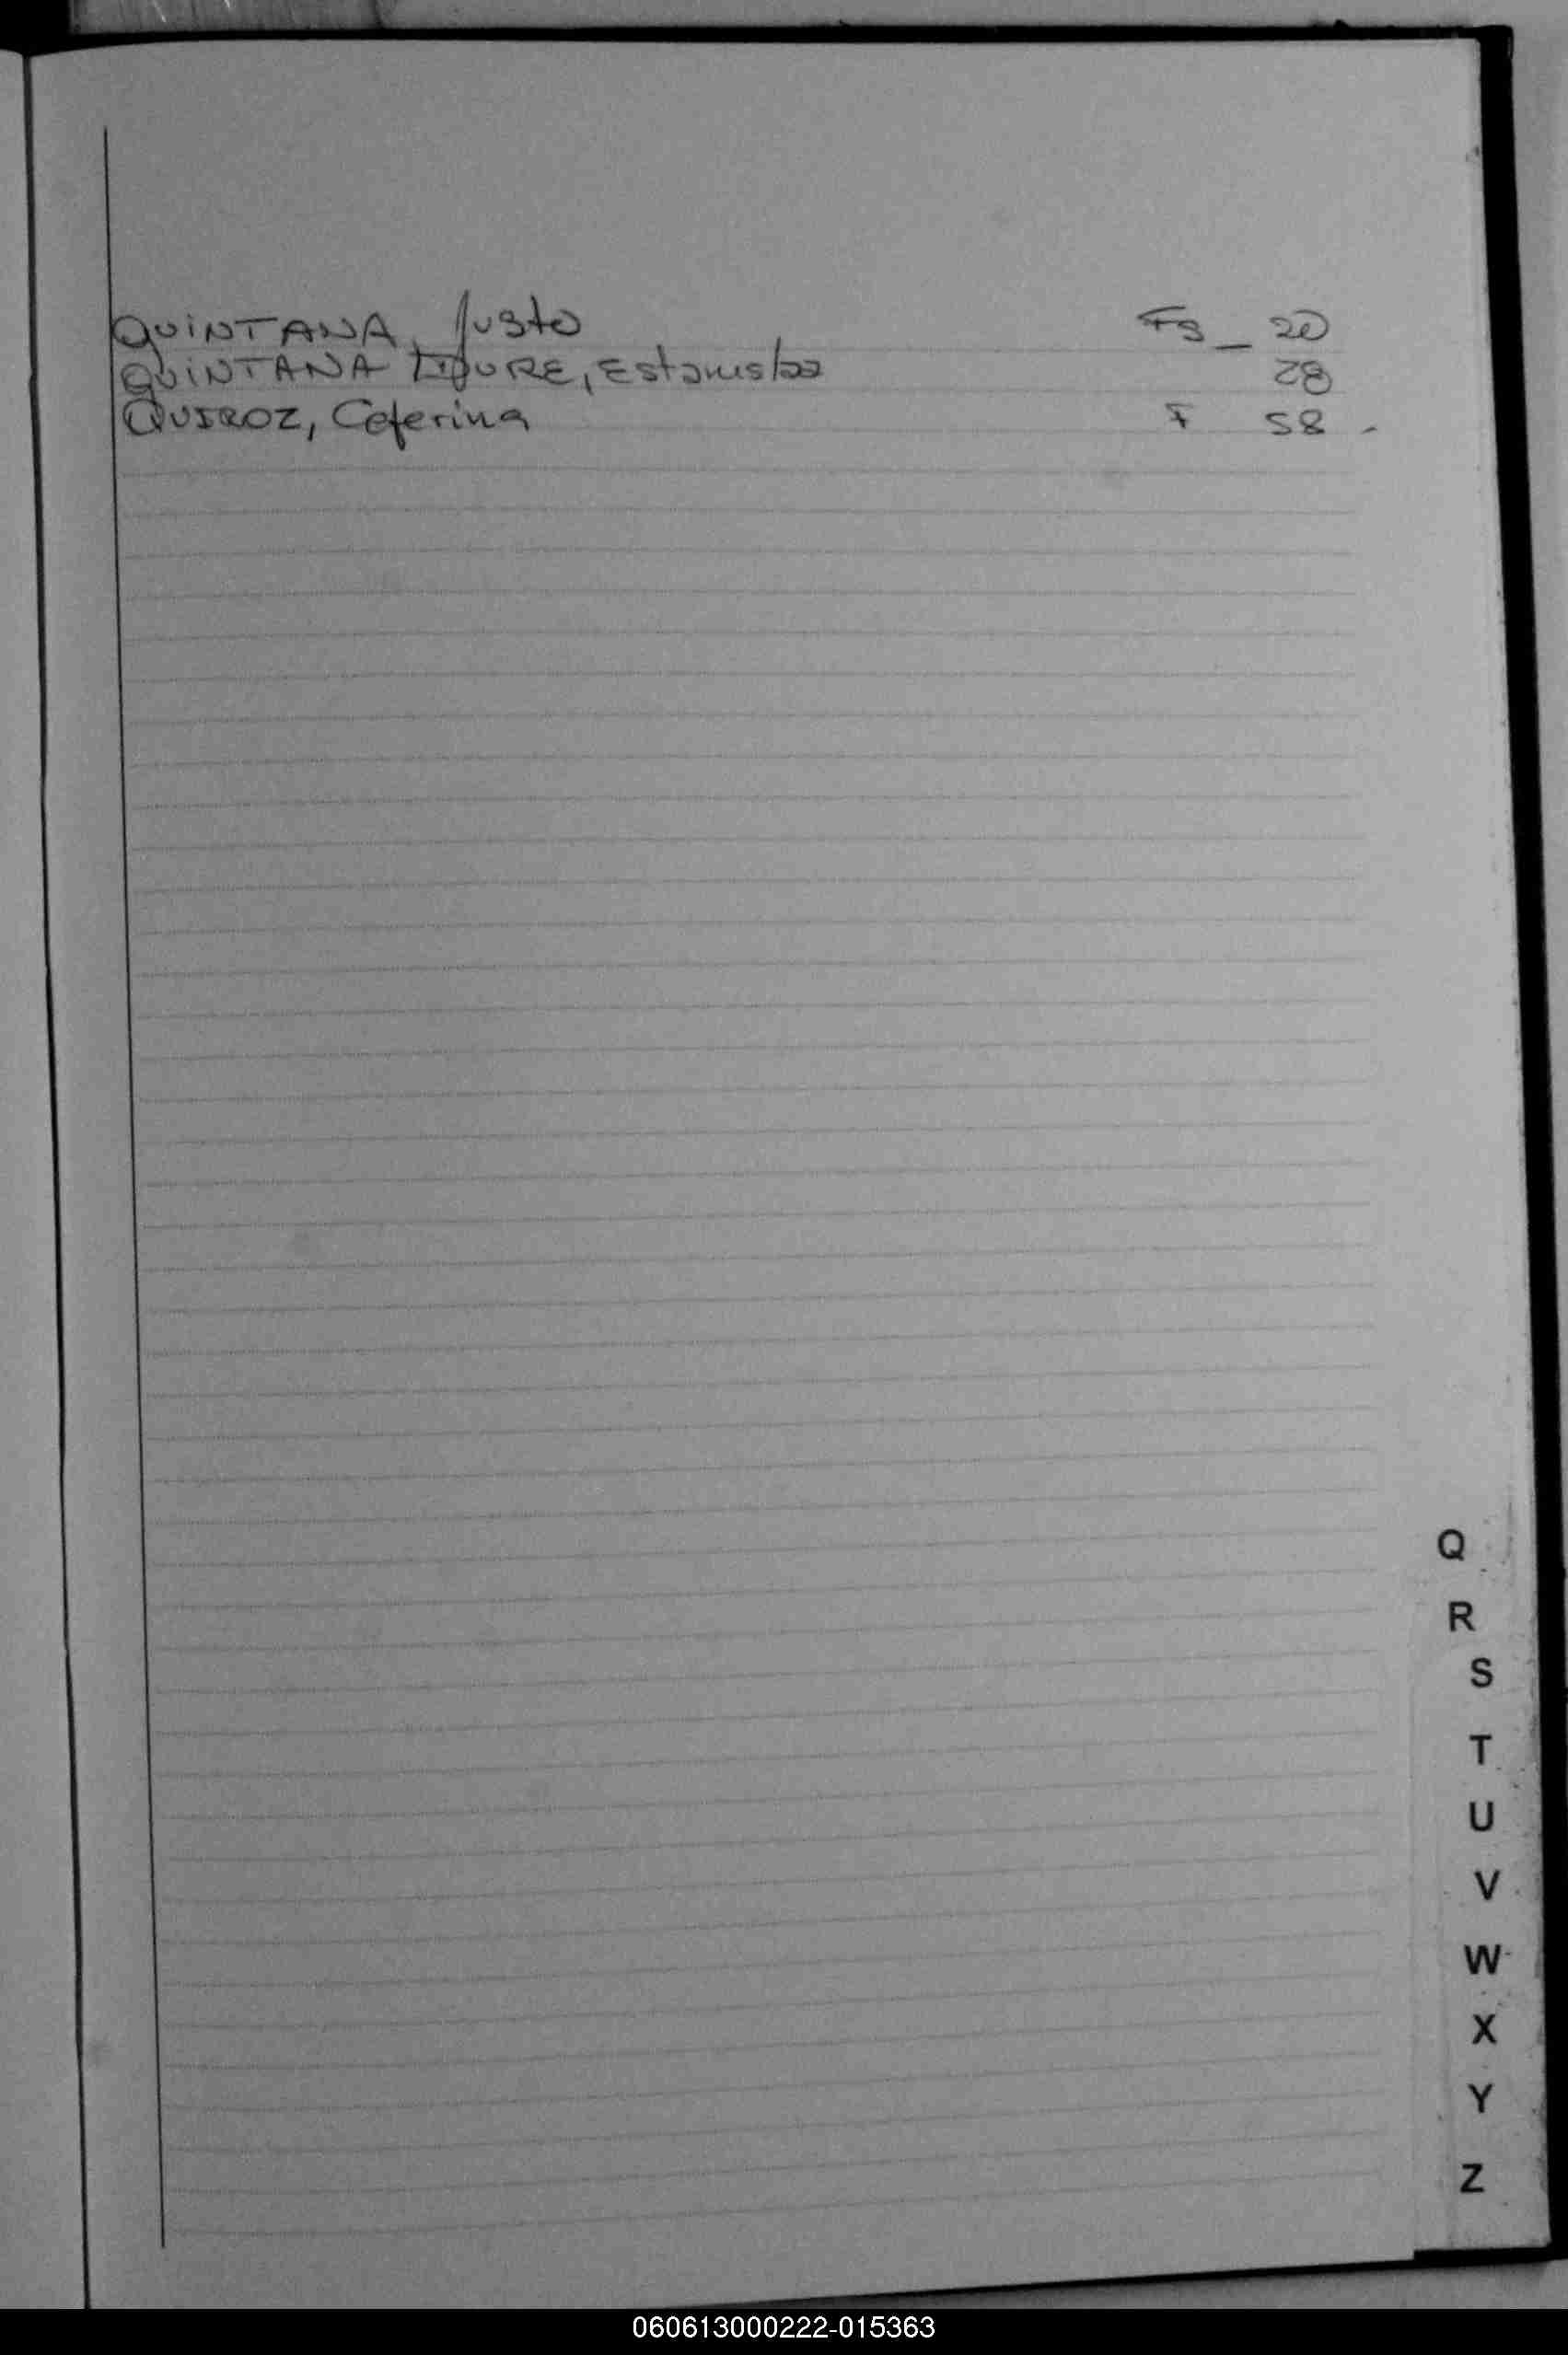 QUINTANA, Justo Fs _ 20
QUINTANA Estanislao 28
QUIROZ, Ceferina F 58 -
Q
R
S
T
U
V
W
X
Y
Z
060613000222-015363